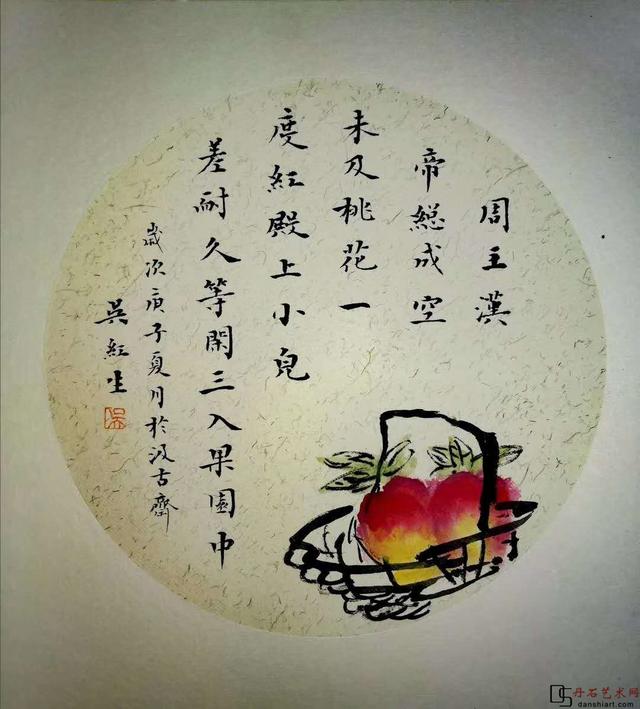 周主漢
帝総成空
未及桃花一
度紅殿上小皃
差耐久等閑三入果園中
歲次庚子夏月於汲古齋
吴紅生
吴
丹石艺术网
danshiart.com